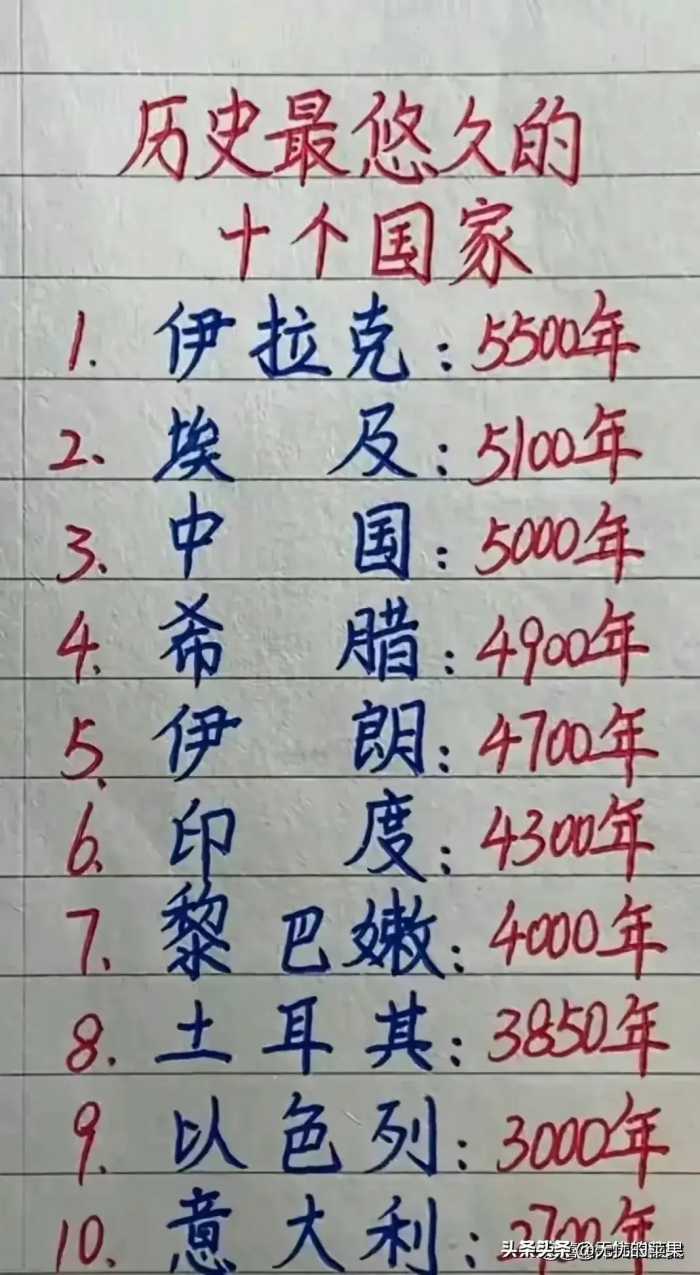 历史最悠久的
十个国家
1. 伊拉克:5500年
2. 埃及:5100年
3. 中国:5000年
4. 希腊:4900年
5. 伊朗:4700年
6. 印度:4300年
7. 黎巴嫩:4000年
8. 土耳其:3850年
9. 以色列:3000年
10. 意大利:2700年
头条 @无忧的苹果